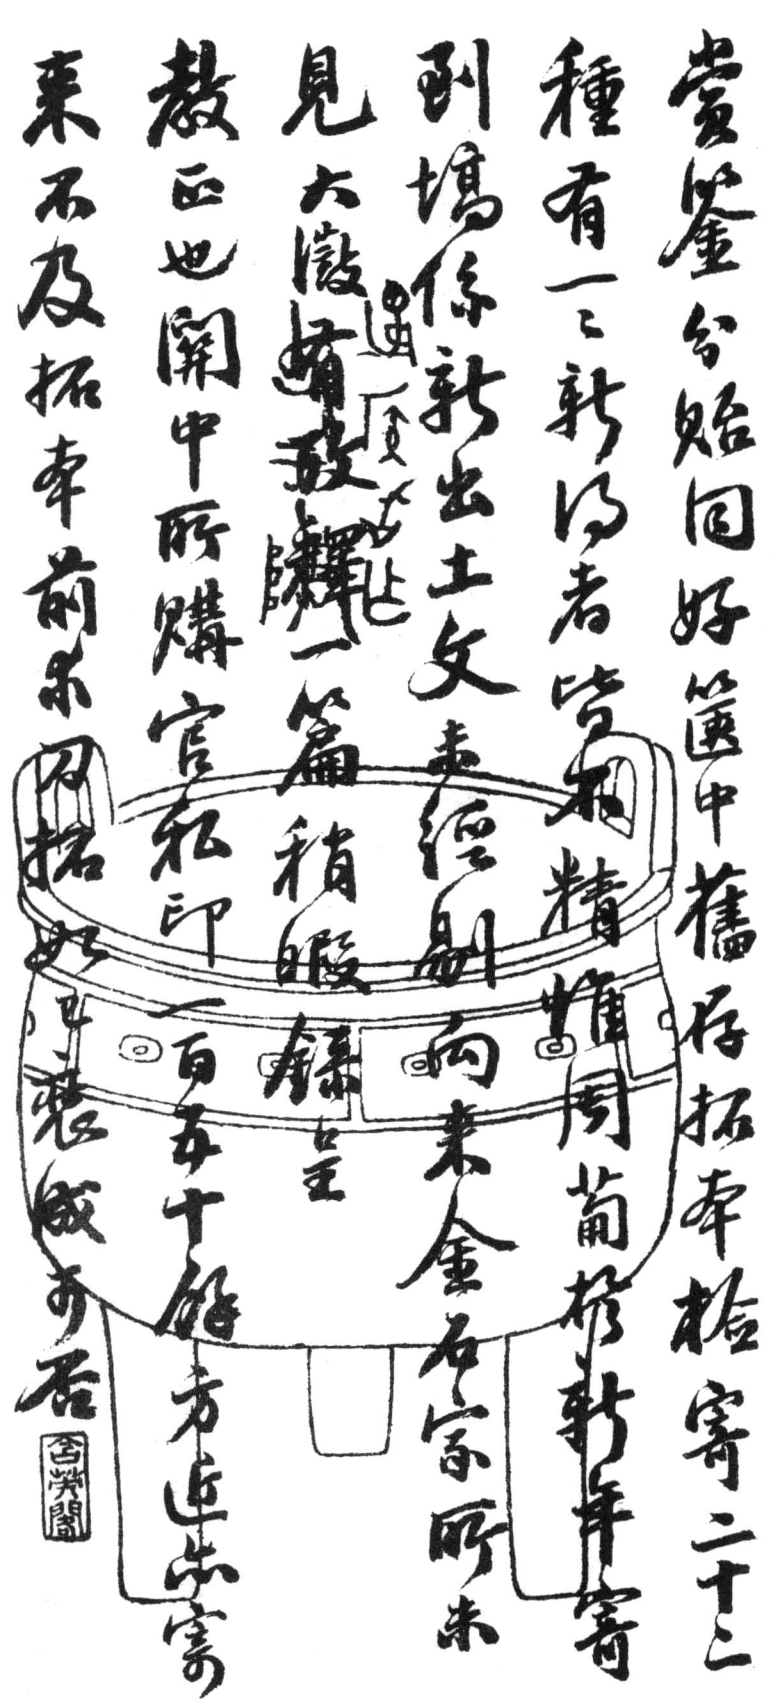 賞鑒分貽同好篋中舊存拓本檢寄二十二
種有一二新得者皆不精惟周葡於新年寄
到塙係新出土文未經剔向來金石家所未
見大澂有攷釋一篇稍暇錄呈
教正也關中所購官私印一百五十餘方近亦寄
來不及拓本前求拓如已裝成可否
含英閣